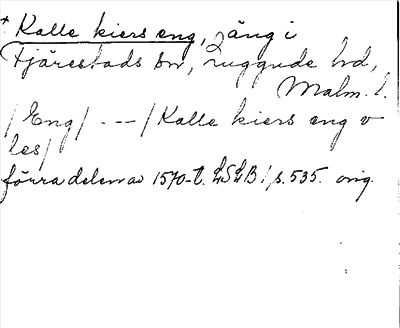 * Kalle kiers eng, äng i
Tjärestads sn, Ingelsta hd,
Malm. l.
/Eng/ --- /Kalle kiers eng v
les/
förra delen av 1570-t. LSLB! s. 535. orig.